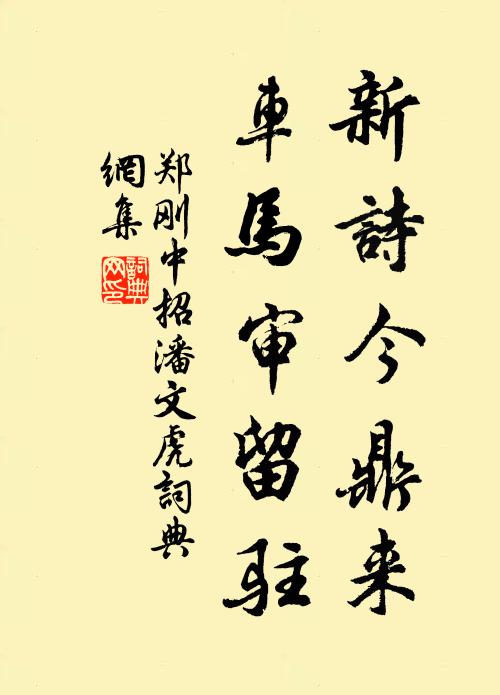 新詩今鼎来
車馬审留駐
郑刚中招潘文虎詞典
網集
詞典网印